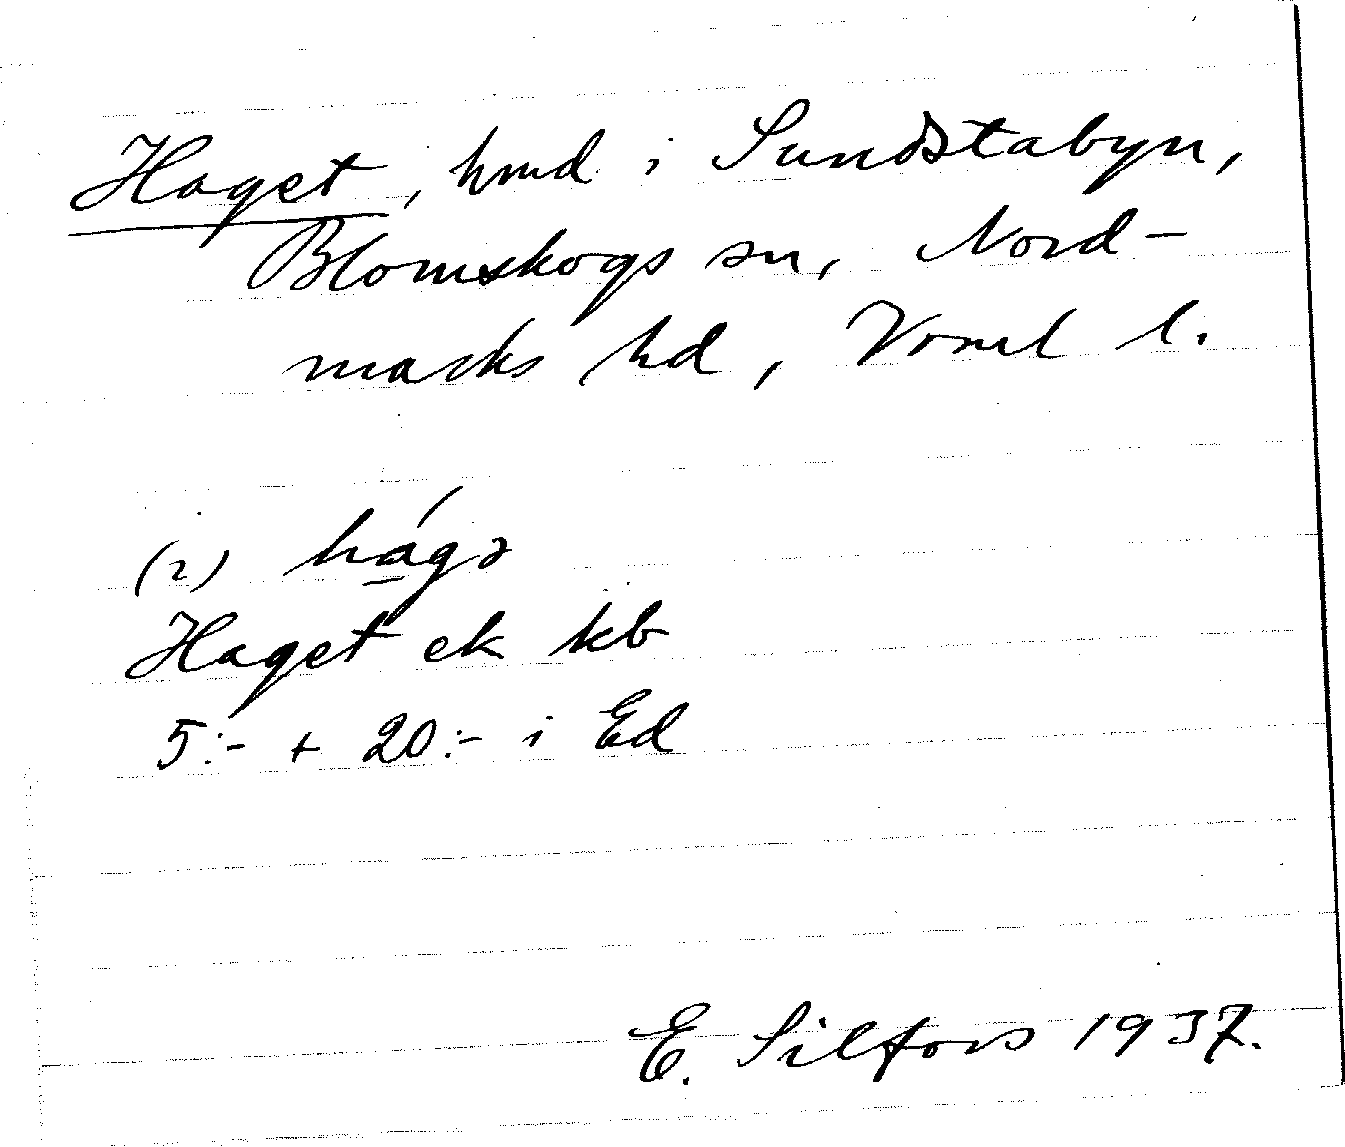 Haget, hmd i Sundstabyn,
Blomskogs sn, Nord-
marks hd, Vrml l.
(2) hágə
Haget ek kb
5:- + 20:- i Ed
E. Silfors 1937.